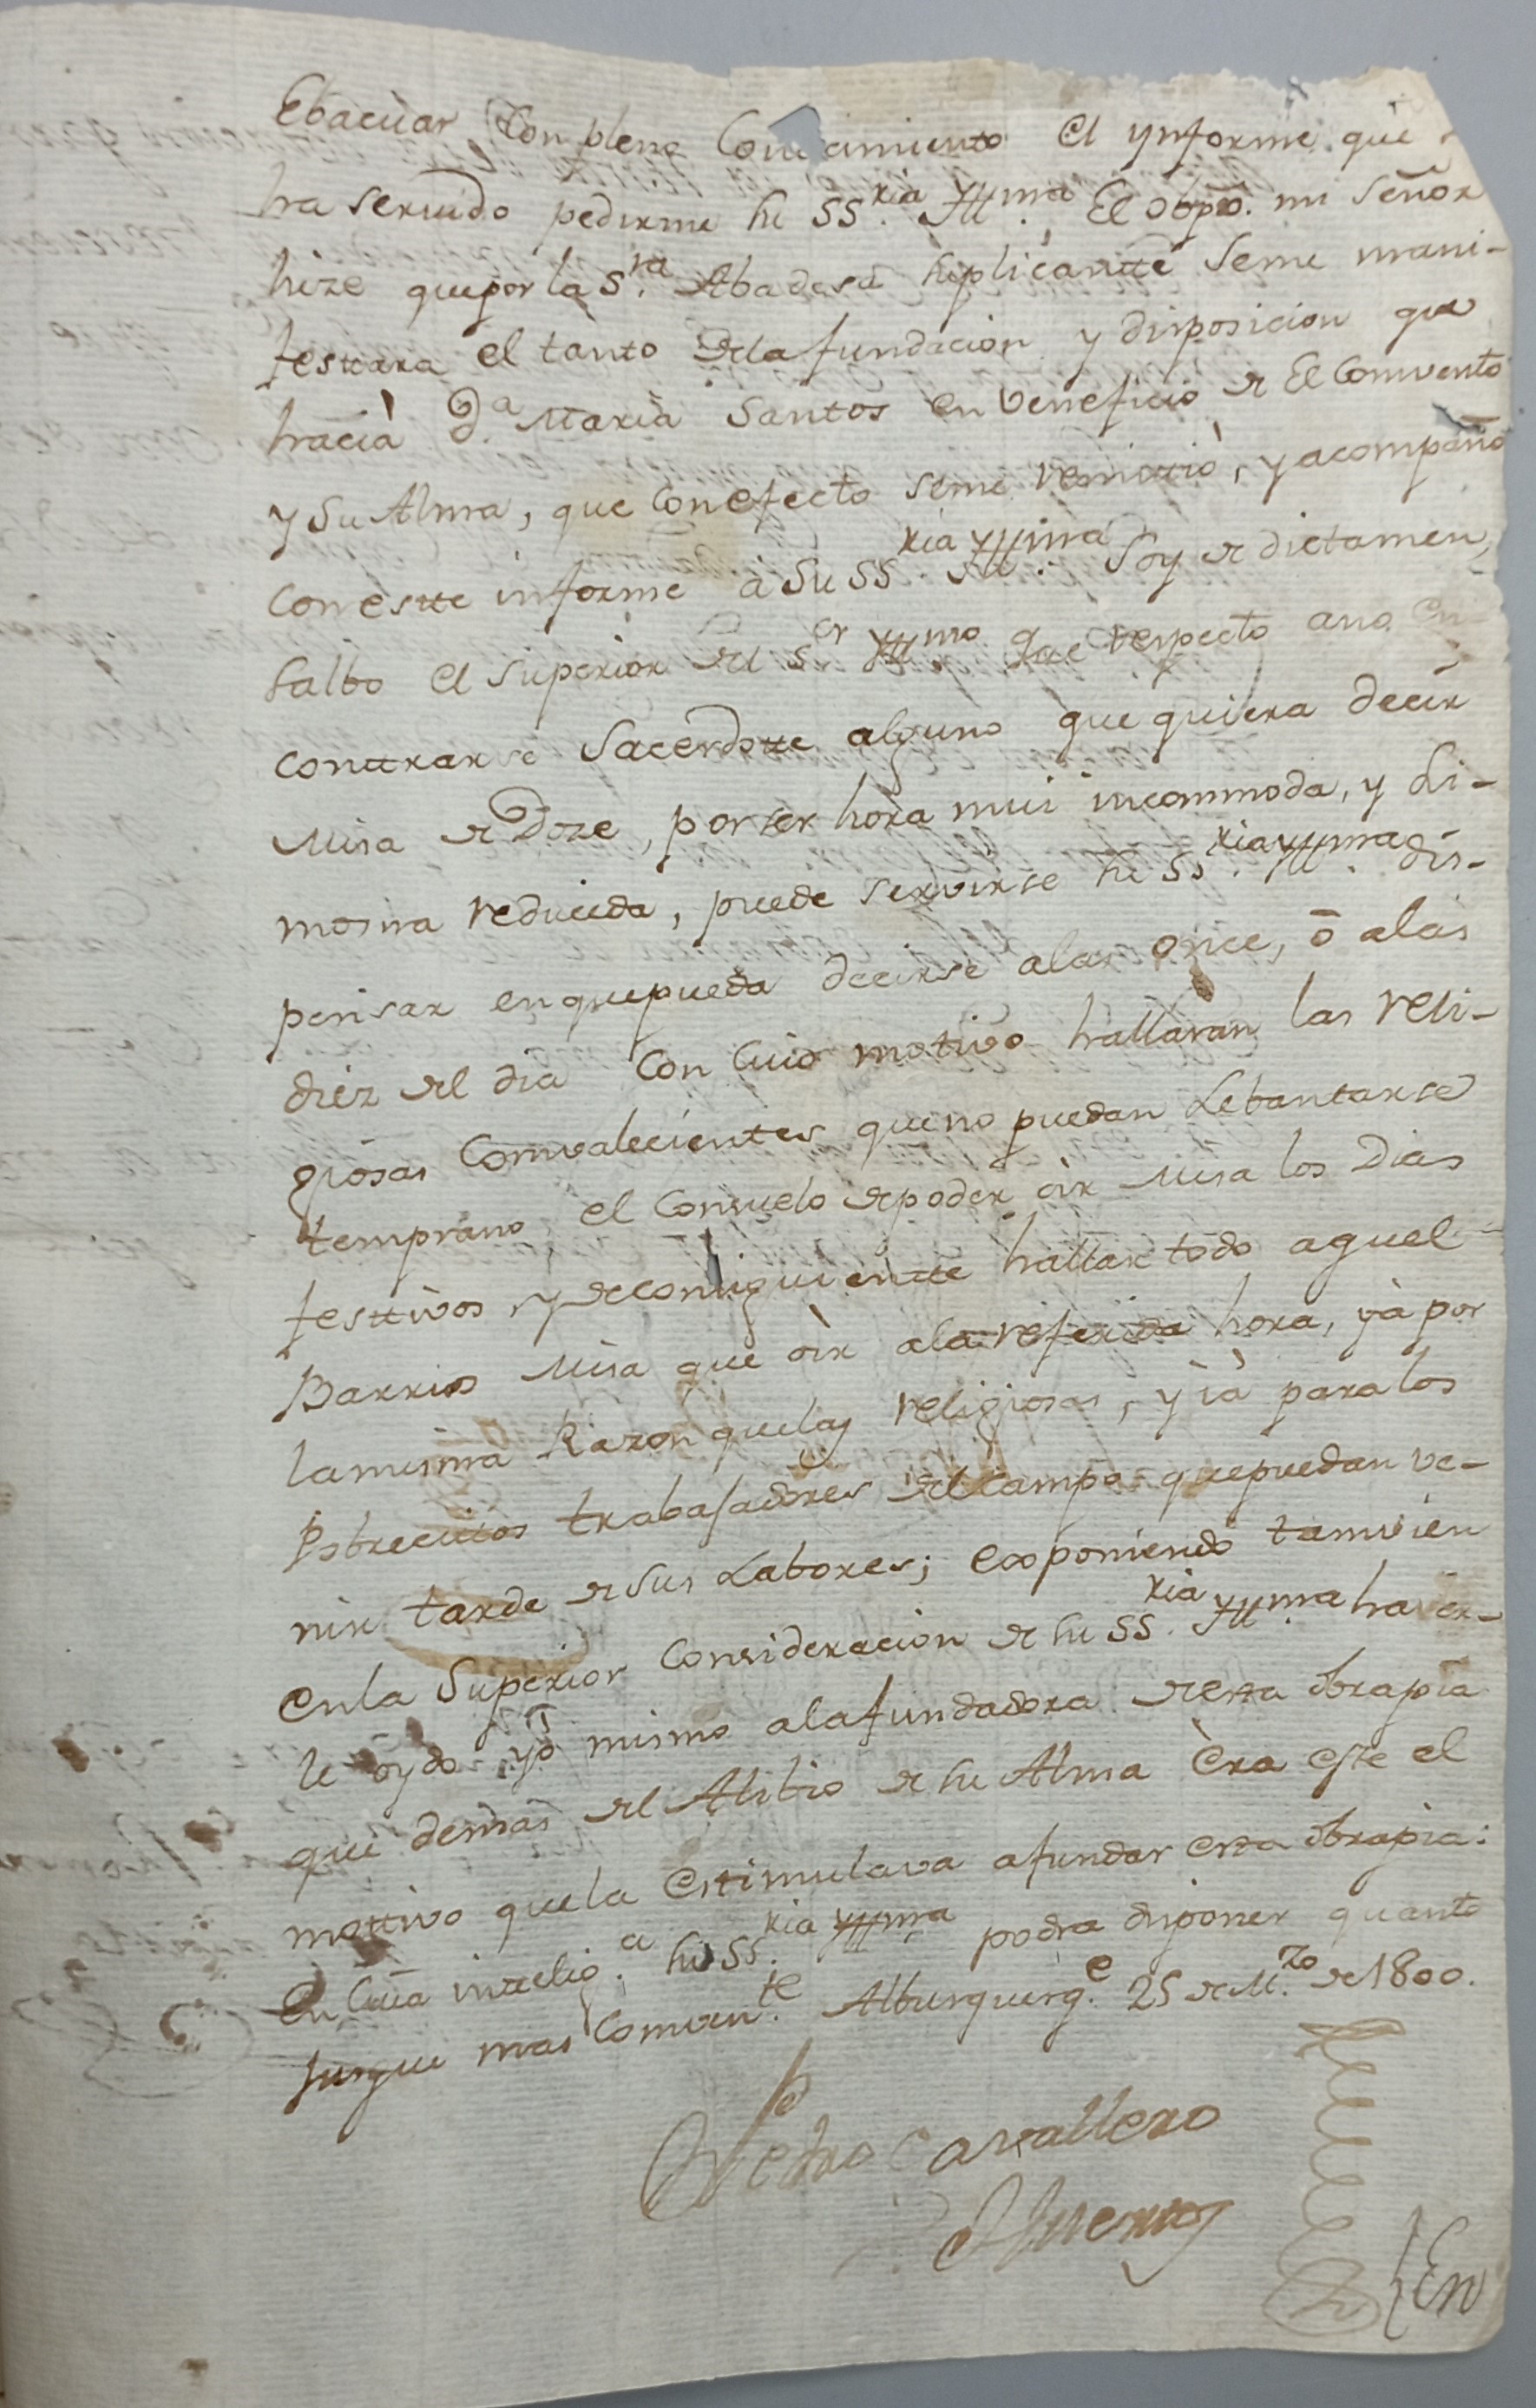 Ebacuar con pleno Conocimiento el ynforme que
ha servido pedirme su SS.ria Yllma. El Obpo. mi Señor
hize que por la S.ra Abadesa suplicantte se me mani-
festtara el tanto de la fundacion y disposicion que
hacià D.a Maria Santos en veneficio de El Comvento
y su Alma, que con efecto se me remittiò, y acompaño
con estte informe à su SS.ria Yllma. Soy de dictamen,
salbo el superior del S.or Yllmo. que respecto a no en
conttrarse Sacerdotte alguno que quiera decir
Misa de Doze, por ser hora mui incommoda, y Li-
mosna reducida, puede servirse su SS.ria Yllma. dis-
pensar en que pueda decirse a las once, ò a las
diez del dia con cuio motivo hallaran las reli-
giosas Comvalecientes que no puedan Lebantarse
temprano, el Consuelo de poder oir Misa los Dias
festtivos y de consiguientte hallar todo aquel
Barrio Misa que oir a la referida hora, yà por
la misma Razon que las religiosas, y ià para los
Pobrecitos trabajadores del campo que puedan ve-
nir tarde de sus Labores; exponiendo tamvien
en la Superior Consideracion de su SS.ria Yllma. haver-
le oydo yo mismo a la fundadora de esta obrapia
que demàs del Alibio de su Alma èra este el
mottivo que la estimulava a fundar esta obrapia:
En cuia inttelig.a su SS.ria Yllma. podra disponer quanto
jusgue mas Comven.te Alburquerq.e 25 de M.zo de 1800.
Pedro Cavallero
En